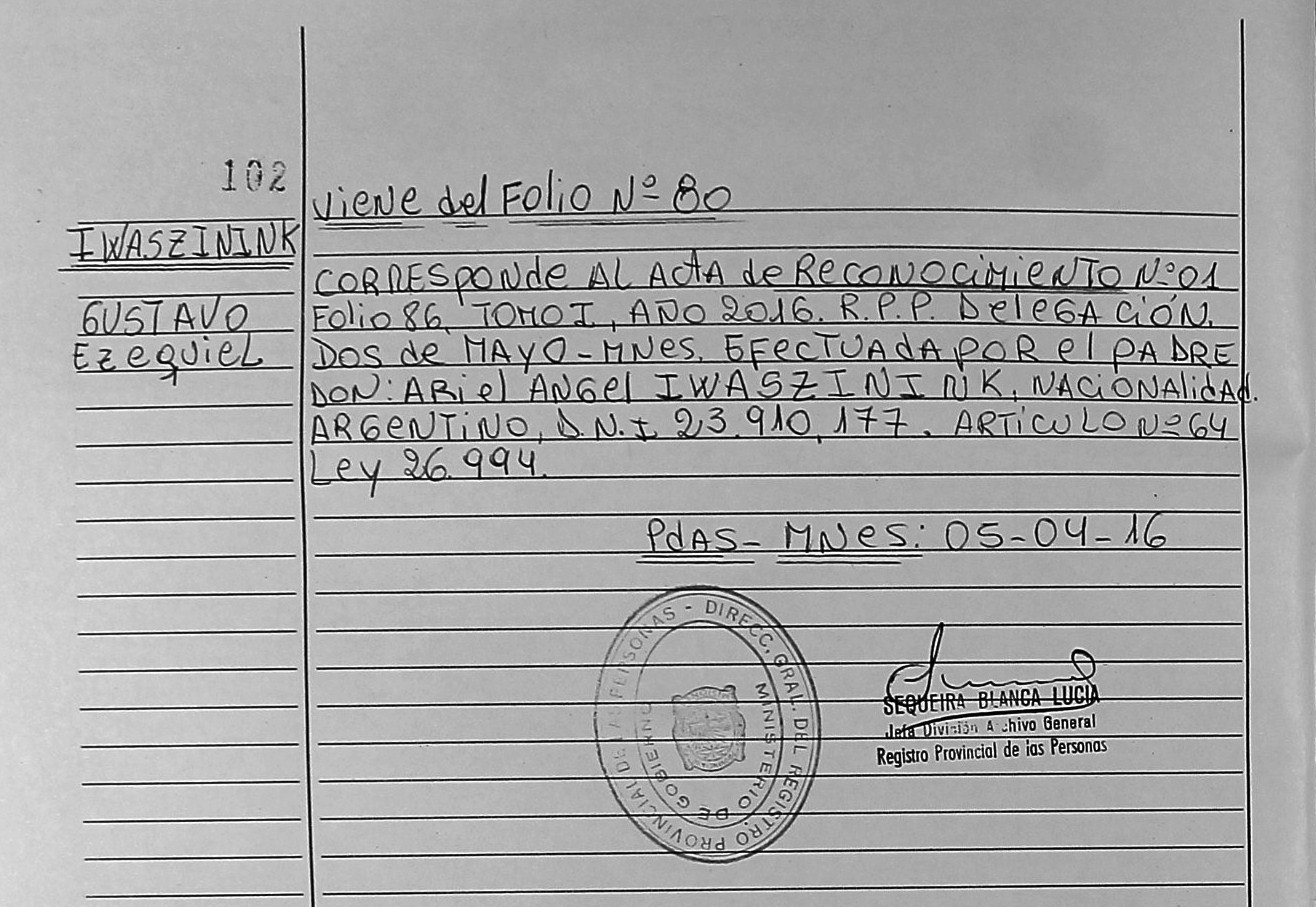 102
viene del Folio Nº 80
IWASZININK
GUSTAVO
EzequieL
CORRESponde AL ActA de RECONOCiMieNTO Nº01
Folio 86, TOMO I, AÑO 2016. R.P.P. DeleGACiÓN.
DOS de MAYO-MNes. EFeCTUAdA POR el PADRE
DON: ARiel ANGel IWASZININK, NACiONAlidAd.
ARGeNTiNO, D.N.I 23.910.177. ARTiCULO Nº64
Ley 26.994.
PdAS- MNes: 05-04-16
DIRECC, GRAL. DEL REGISTRO PROVINCIAL DE LAS PERSONAS -
MINISTERIO DE GOBIERNO
SEQUEIRA BLANCA LUCIA
Jefa División Archivo General
Registro Provincial de las Personas